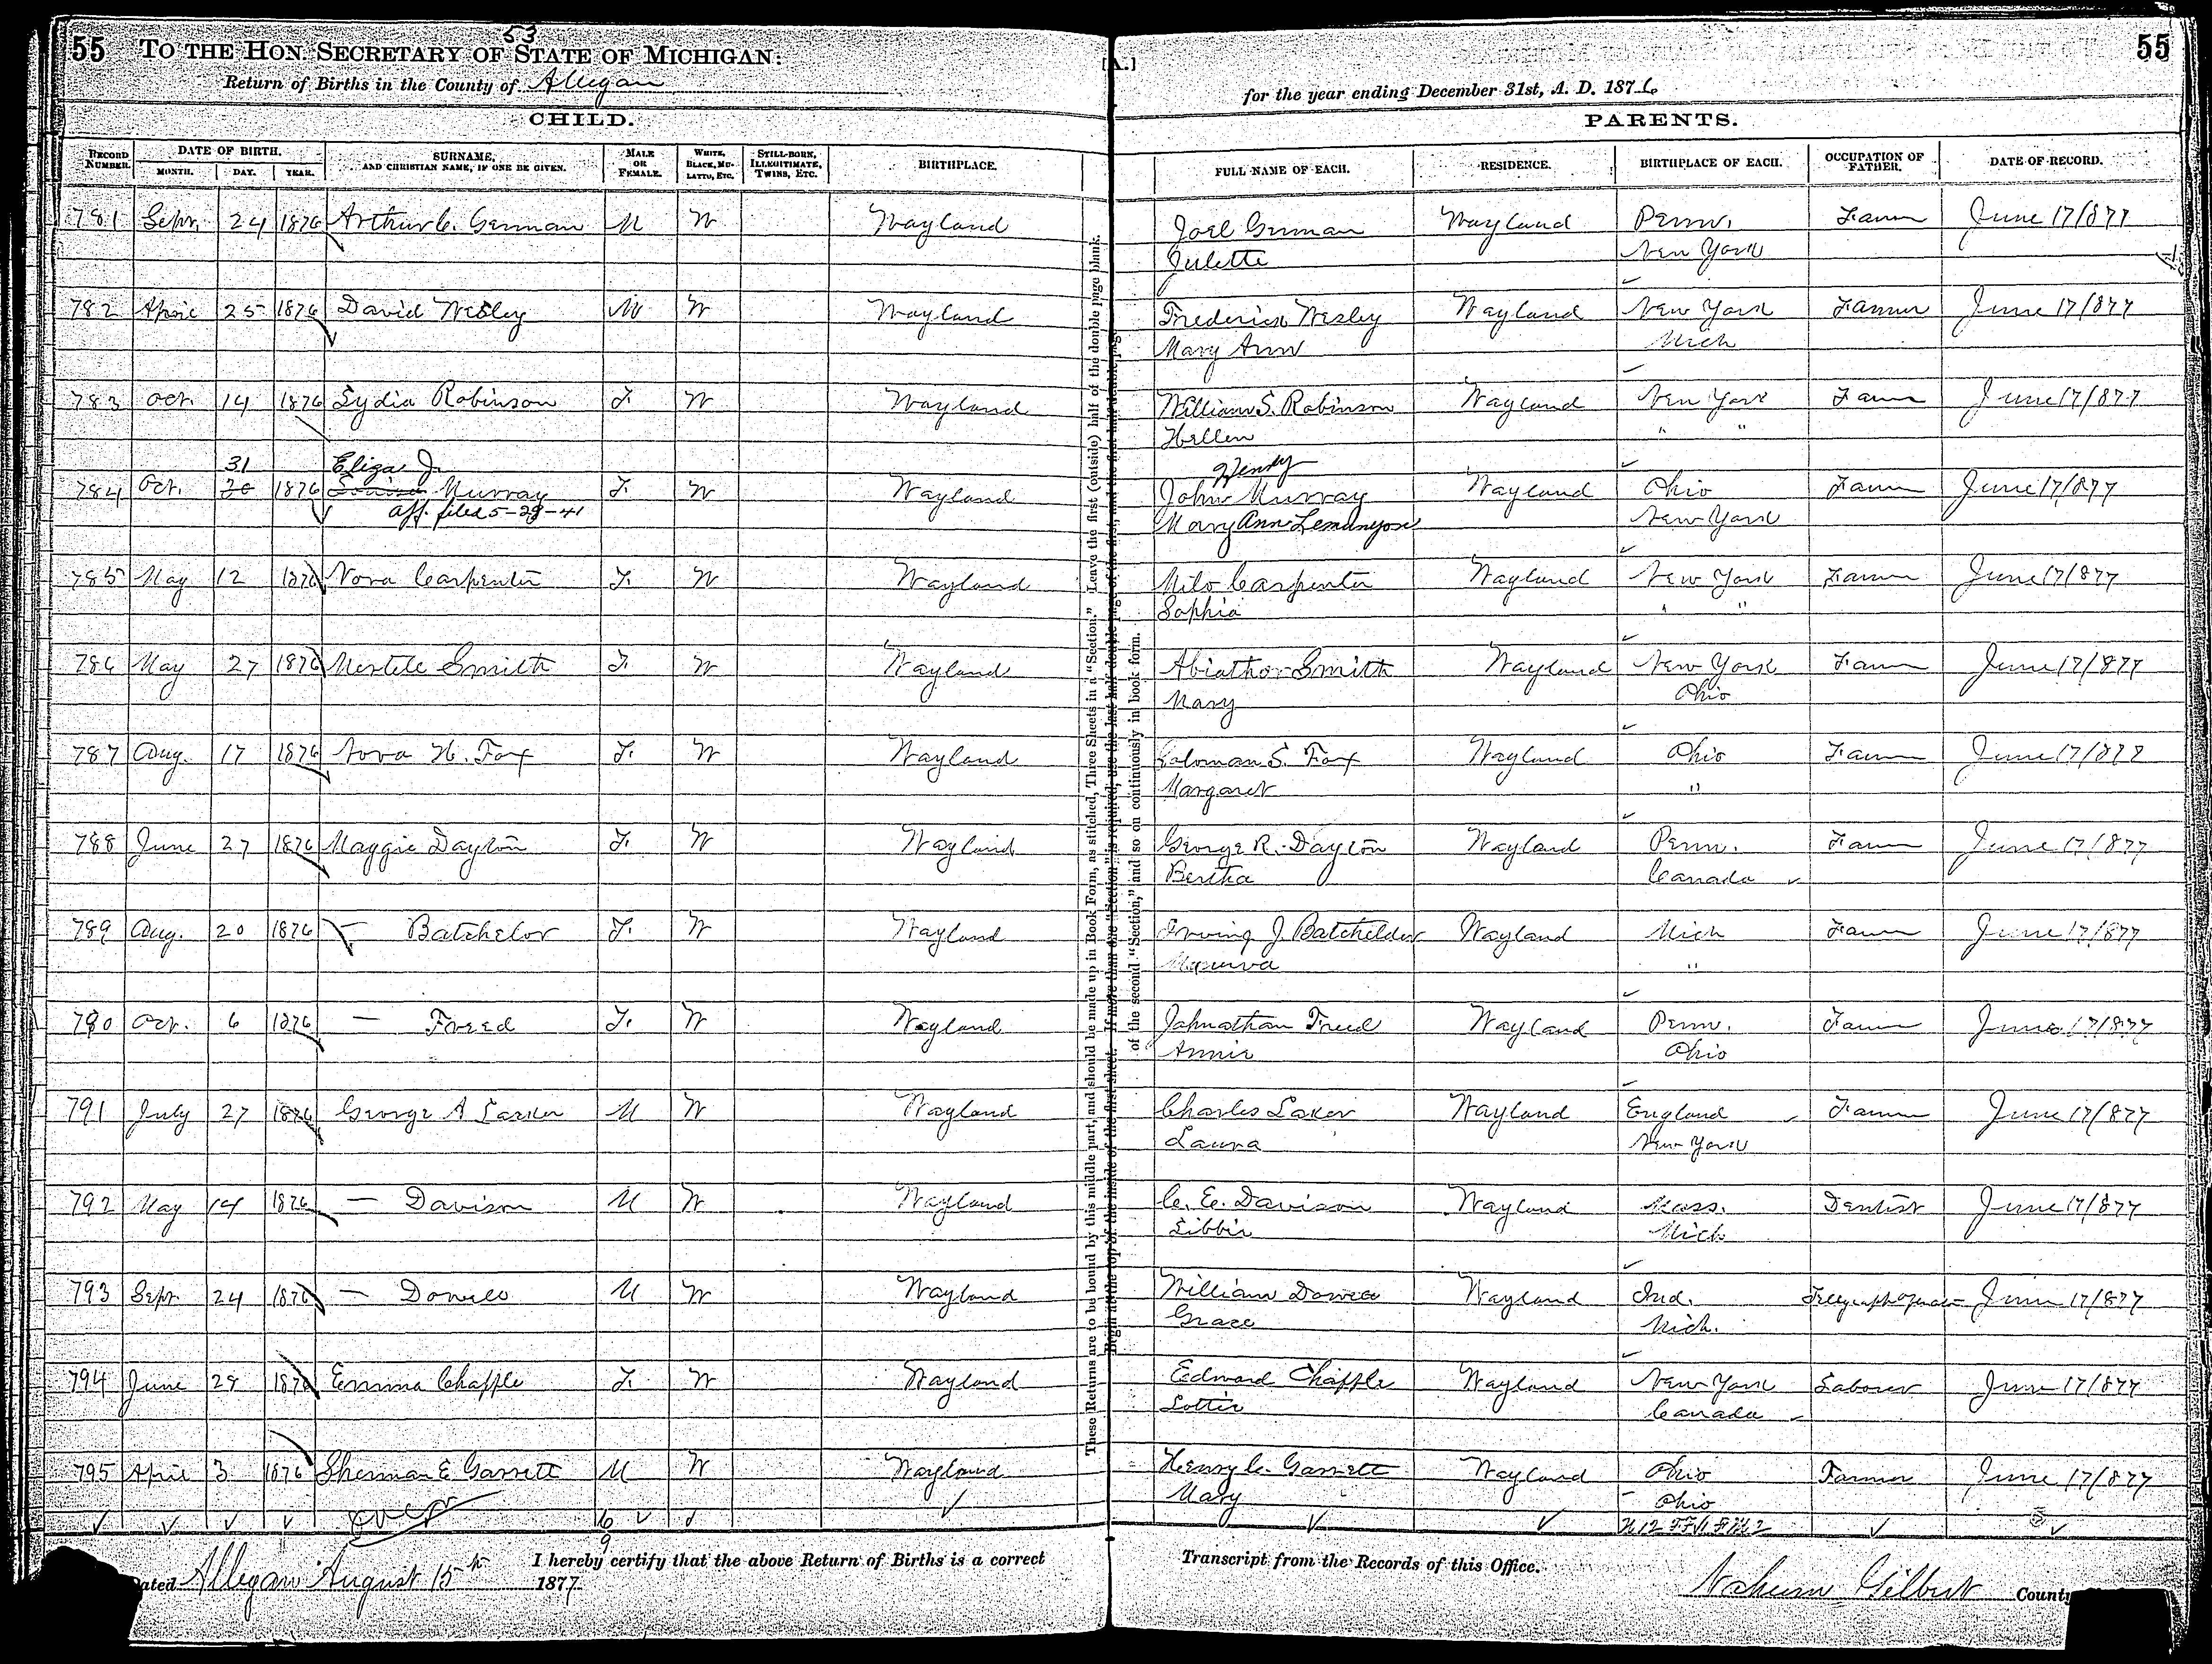 53
55 TO THE HON. SECRETARY OF STATE OF MICHIGAN: [A.] 55
Return of Births in the County of Allegan for the year ending December 31st, A. D. 1876
CHILD. PARENTS.
RECORD NUMBER. DATE OF BIRTH. MONTH. DAY. YEAR. SURNAME, AND CHRISTIAN NAME, IF ONE BE GIVEN. MALE OR FEMALE. WHITE, BLACK, MULATTO, ETC. STILL-BORN, ILLEGITIMATE, TWINS, ETC. BIRTHPLACE. FULL NAME OF EACH. RESIDENCE. BIRTHPLACE OF EACH. OCCUPATION OF FATHER. DATE OF RECORD.
781 Sept. 24 1876 Arthur C. German M W Wayland Joel German Wayland Penn. Farmer June 17/877
Julette New York
782 April 25 1876 David Wesley M W Wayland Frederick Wesley Wayland New York Farmer June 17/877
Mary Ann Mich
783 Oct. 14 1876 Lydia Robinson F. W Wayland William S. Robinson Wayland New York Farmer June 17/877
Hellen " "
31 Eliza J. Henry
784 Oct. 30 1876 Louisa Murray F. W Wayland John Murray Wayland Ohio Farmer June 17/877
aff. filed 5-29-41 Mary Ann New York
785 May 12 1876 Nora Carpenter F. W Wayland Milo Carpenter Wayland New York Farmer June 17/877
Sophia " "
786 May 27 1876 Mertele Smith F. W Wayland Abiathor Smith Wayland New York Farmer June 17/877
Mary Ohio
787 Aug. 17 1876 Nora H. Fox F. W Wayland Soloman S. Fox Wayland Ohio Farmer June 17/877
Margaret "
788 June 27 1876 Maggie Dayton F. W Wayland George R. Dayton Wayland Penn. Farmer June 17/877
Bertha Canada
789 Aug. 20 1876 — Batchelor F. W Wayland Irving J. Batchelder Wayland Mich Farmer June 17/877
Minerva "
790 Oct. 6 1876 — Freed F. W Wayland Johnathan Freed Wayland Penn. Farmer June 17/877
Annie Ohio
791 July 27 1876 George A Larker M W Wayland Charles Laker Wayland England Farmer June 17/877
Laura New York
792 May 14 1876 — Davison M W Wayland C. E. Davison Wayland Mass. Dentist June 17/877
Libbie Mich
793 Sept. 24 1876 — M W Wayland William Wayland Ind. Telegraph Operator June 17/877
Grace Mich.
794 June 29 1876 Emma Chapple F. W Wayland Edward Chapple Wayland New York Laborer June 17/877
Lottie Canada
795 April 3 1876 Sherman E Garrett M W Wayland Henry C. Garrett Wayland Ohio Farmer June 17/877
Mary Ohio
6
9
These Returns are to be bound by this middle part, and should be made up in Book Form, as stitched, Three Sheets in a "Section." Leave the first (outside) half of the double page blank.
Begin at the top of the inside of the first sheet. If more than one "Section" is required, use the last half double page of the first, and the first half double page
of the second "Section," and so on continuously in book form.
I hereby certify that the above Return of Births is a correct Transcript from the Records of this Office.
Dated Allegan August 15th 1877. Nahum Gilbert County